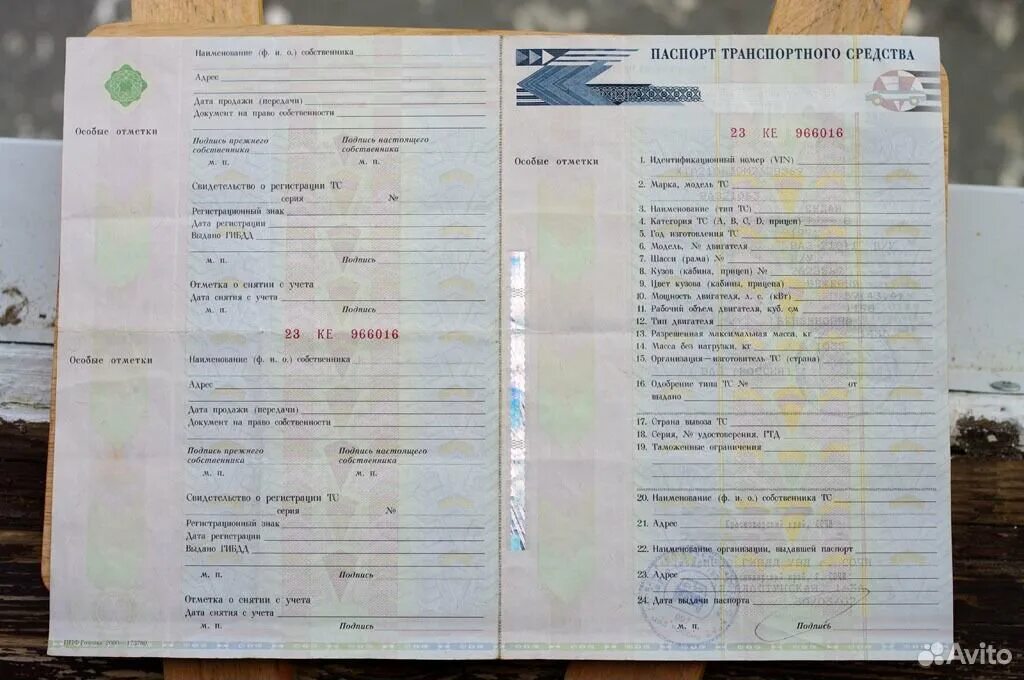 Наименование (ф. и. о.) собственника
Адрес
Дата продажи (передачи)
Документ на право собственности
Особые отметки
Подпись прежнего собственника
Подпись настоящего собственника
м. п.
м. п.
Свидетельство о регистрации ТС
серия №
Регистрационный знак
Дата регистрации
Выдано ГИБДД
м. п. Подпись
Отметка о снятии с учета
Дата снятия с учета
м. п. Подпись
23 КЕ 966016
Особые отметки
Наименование (ф. и. о.) собственника
Адрес
Дата продажи (передачи)
Документ на право собственности
Подпись прежнего собственника
Подпись настоящего собственника
м. п.
м. п.
Свидетельство о регистрации ТС
серия №
Регистрационный знак
Дата регистрации
Выдано ГИБДД
м. п. Подпись
Отметка о снятии с учета
Дата снятия с учета
м. п. Подпись
ПАСПОРТ ТРАНСПОРТНОГО СРЕДСТВА
23 КЕ 966016
Особые отметки
1. Идентификационный номер (VIN)
2. Марка, модель ТС
3. Наименование (тип ТС)
4. Категория ТС (A, B, C, D, прицеп)
5. Год изготовления ТС
6. Модель, № двигателя
7. Шасси (рама) №
8. Кузов (кабина, прицеп) №
9. Цвет кузова (кабины, прицепа)
10. Мощность двигателя, л. с. (кВт)
11. Рабочий объем двигателя, куб. см
12. Тип двигателя
13. Разрешенная максимальная масса, кг
14. Масса без нагрузки, кг
15. Организация—изготовитель ТС (страна)
16. Одобрение типа ТС № от
выдано
17. Страна вывоза ТС
18. Серия, № удостоверения, ГТД
19. Таможенные ограничения
20. Наименование (ф. и. о.) собственника ТС
21. Адрес
22. Наименование организации, выдавшей паспорт
23. Адрес
24. Дата выдачи паспорта
м. п. Подпись
Avito